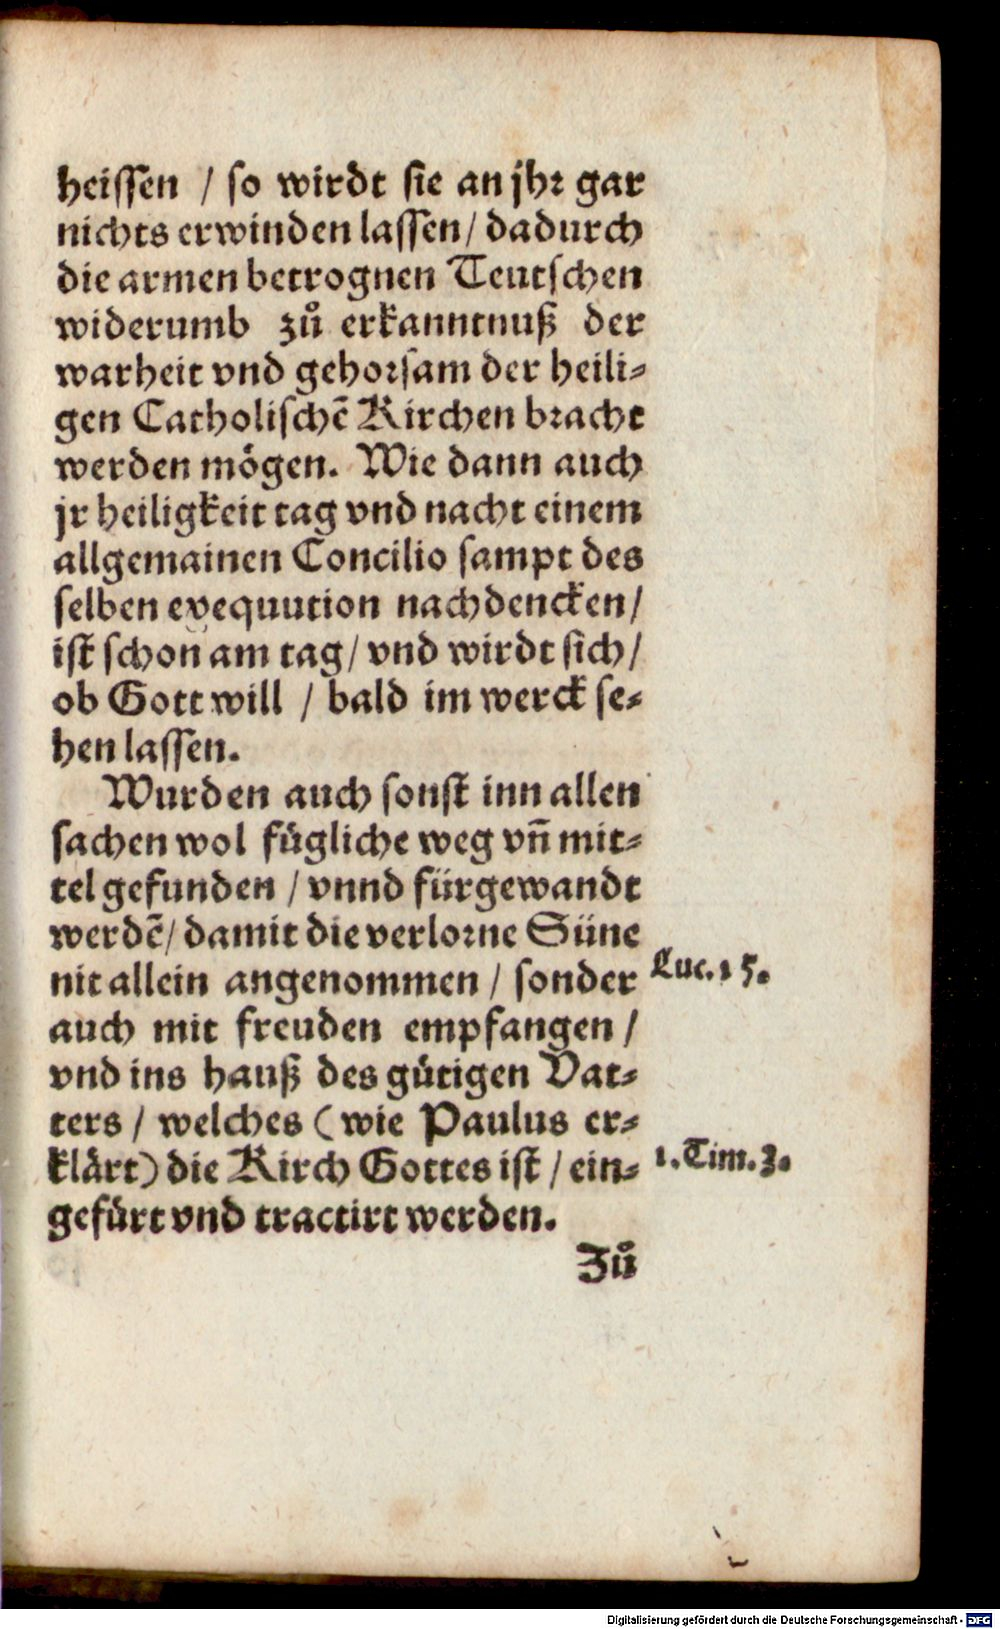 heissen / so wirdt sie an jhr gar
nichts erwinden lassen / dadurch
die armen betrognen Teutschen
widerumb zů erkanntnuß der
warheit vnd gehorsam der heili-
gen Catholischē Kirchen bracht
werden mögen. Wie dann auch
jr heiligkeit tag vnd nacht einem
allgemainen Concilio sampt des
selben exequution nachdencken /
ist schon am tag / vnd wirdt sich /
ob Gott will / bald im werck se-
hen lassen.
Wurden auch sonst inn allen
sachen wol fügliche weg vñ mit-
tel gefunden / vnnd fürgewandt
werdē / damit die verlorne Süne
nit allein angenommen / sonder
Luc. 15.
auch mit freuden empfangen /
vnd ins hauß des gütigen Vat-
ters / welches (wie Paulus er-
klärt) die Kirch Gottes ist / ein-
1. Tim. 3.
gefürt vnd tractirt werden.
Zů
Digitalisierung gefördert durch die Deutsche Forschungsgemeinschaft - DFG